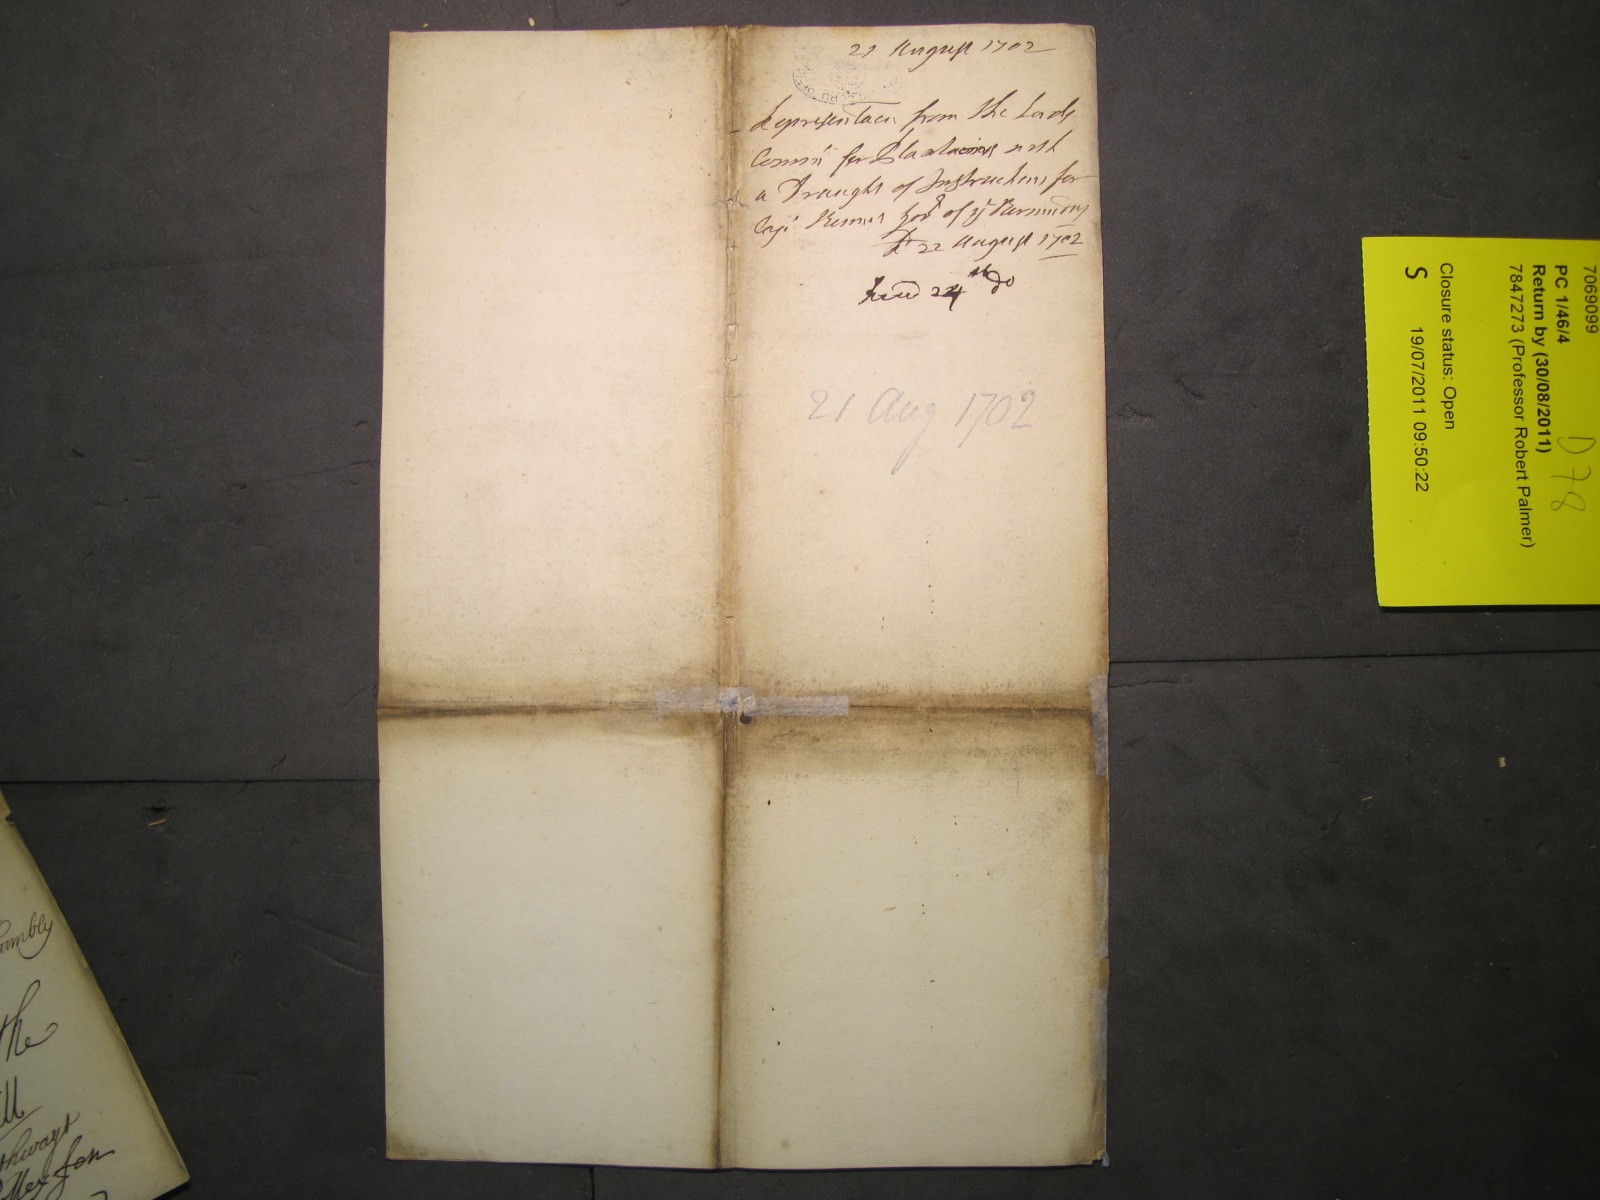 21 August 1702
Representacon from the Lords
Comrs for Plantacions with
a Draught of Instructions for
Capt Bennet Govr of ye Bermudas
22 August 1702
Read 24th do
21 Aug 1702
7069099
PC 1/46/4
Return by (30/08/2011)
7847273 (Professor Robert Palmer)
D 78
Closure status: Open
S 19/07/2011 09:50:22
humbly
the